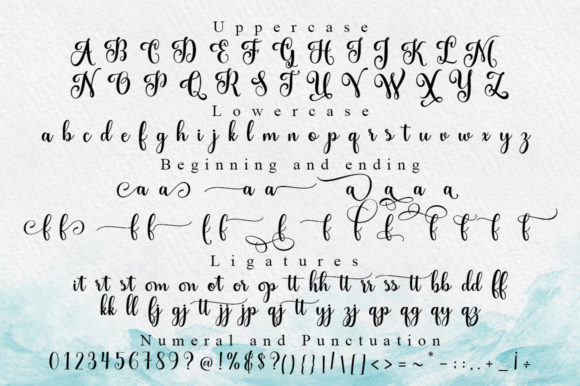 Uppercase
A B C D E F G H I J K L M
N O P Q R S T U V W X Y Z
Lowercase
a b c d e f g h i j k l m n o p q r s t u v w x y z
Beginning and ending
a a a a a a a a
Ligatures
it rt st om on ot or op tt hh tt rr ss tt bb dd ff
kk ll fj gj tt jj jp qj tt yj zj ap qq yq qy qz
Numeral and Punctuation
0123456789?@!%&$?(){}|/\[]<>=~*-::..+_¡÷